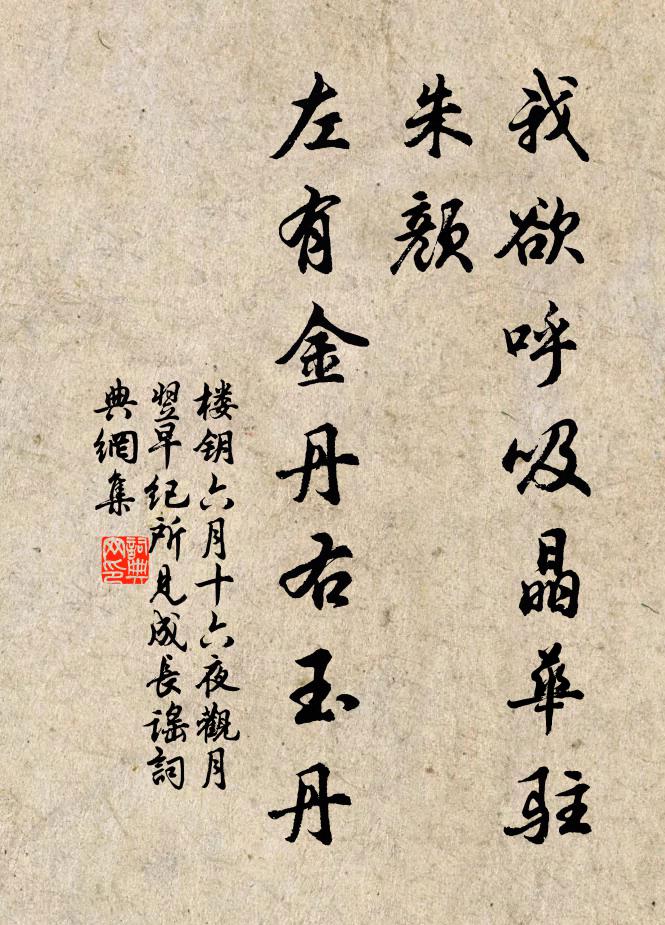 我欲呼吸晶華駐
朱顏
左有金丹右玉丹
楼钥六月十六夜觀月
翌早纪所見成長謠詞
典網集
詞典
网印